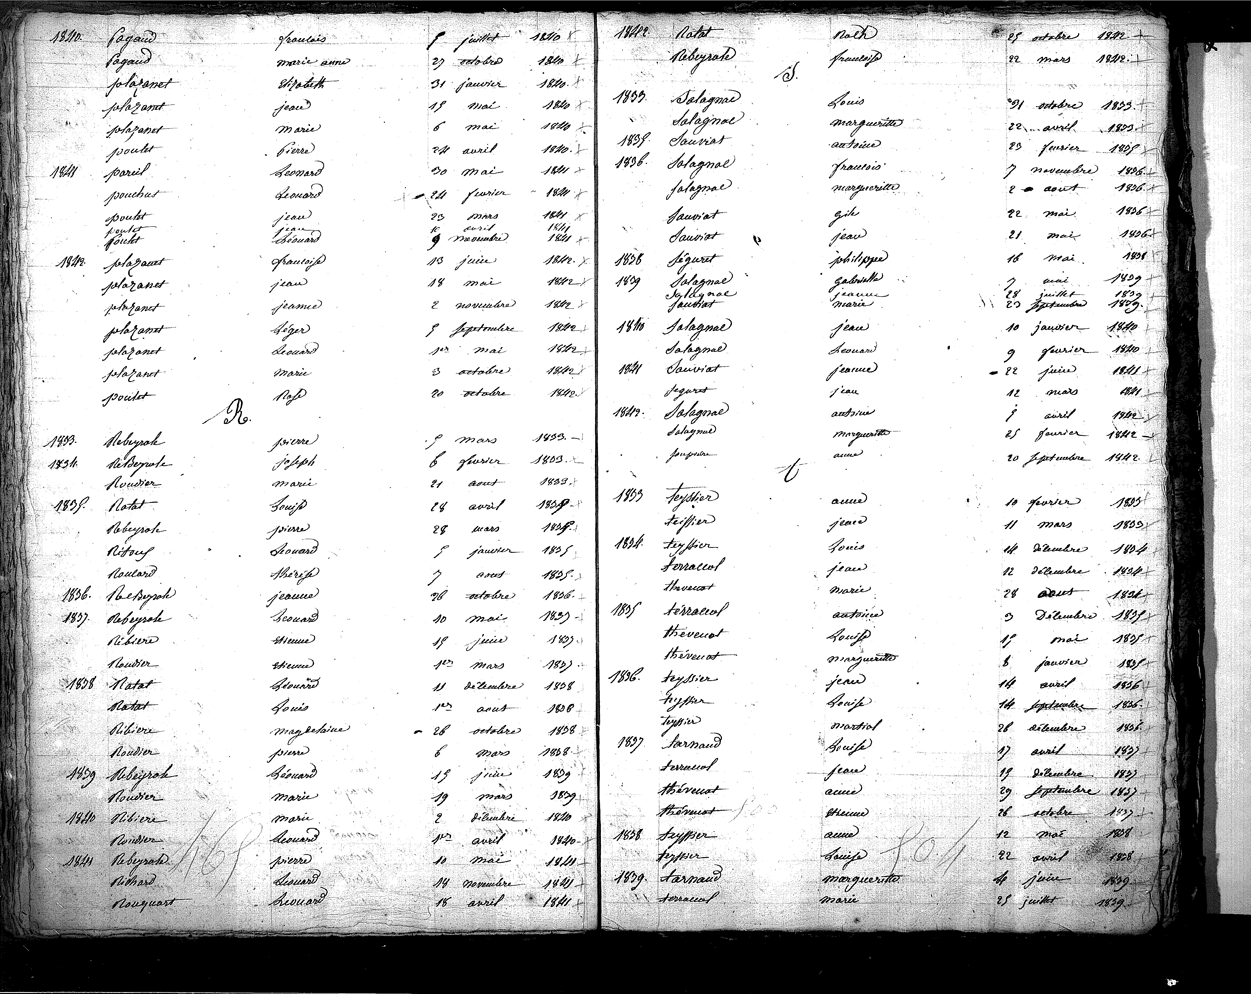 1840. Pagaud françois 5 juillet 1840
Pagaud marie anne 27 octobre 1840
plazanet Elizabeth 31 janvier 1840.
plazanet jean 15 mai 1840
plazanet marie 6 mai 1840
poulet Pierre 24 avril 1840.
1841 pareil Léonard 30 mai 1841
pouchus Léonard 24 fevrier 1841
poulet jean 23 mars 1841
poulet jean 10 avril 1841
Poulet Léonard 9 novembre 1841
1842. plazanet françoise 13 juin 1842.
plazanet jean 18 mai 1842
plazanet jeanne 2 novembre 1842
plazanet Léger 5 septembre 1842
plazanet Léonard 1er mai 1842
plazanet marie 3 octobre 1842
poulet Rose 20 octobre 1842
R.
1833. Rebeyrole pierre 5 mars 1833.
1834. Rebeyrole joseph 6 fevrier 1833.
Roudier marie 21 aout 1833.
1835. Ratat Louise 28 avril 1835
Rebeyrole pierre 28 mars 1835.
Léonard 5 janvier 1835
Roulard thérèse 7 aout 1835.
1836. Rebeyrole jeanne 26 octobre 1836.
1837. Rebeyrole Léonard 10 mai 1837
Ribiere etienne 15 juin 1837.
Roudier etienne 1er mars 1837
1838 Ratat Léonard 11 décembre 1838
Ratat Louis 1er aout 1838
Ribiere magdelaine 26 octobre 1838
Roudier pierre 6 mars 1838
1839 Rebeyrole Léonard 15 juin 1839
Roudier marie 19 mars 1839
1840 Ribiere marie 2 décembre 1840
Roudier Léonard 1er avril 1840
1841 Rebeyrole pierre 10 mai 1841
Richard Léonard 18 novembre 1841
Rouquart Léonard 18 avril 1841
1842. Ratat 25 octobre 1842
Rebeyrole françoise 22 mars 1842.
S.
1833. Salagnac Louis 31 octobre 1833.
Salagnac margueritte 22 avril 1833
1835. Sauviat antoine 23 fevrier 1835
1836. Salagnac françois 7 novembre 1836
Salagnac margueritte 2 aout 1836
Sauviat 22 mai 1836
Sauviat jean 21 mai 1836
1838 Séguret philippe 16 mai 1838
1839 Salagnac gabrielle 7 mai 1839
Salagnac jeanne 28 juillet 1839
Sauviat marie 23 septembre 1839
1840 Salagnac jean 10 janvier 1840
Salagnac Léonard 9 fevrier 1840
1841 Sauviat jeanne 22 juin 1841
Seguret jean 12 mars 1841
1842. Salagnac antoine 5 avril 1842
Salagnac margueritte 25 fevrier 1842
anne 20 septembre 1842
t
1833 teyssier anne 10 fevrier 1833
teissier jean 11 mars 1833
1834. teyssier Louis 14 décembre 1834
terracol jean 12 décembre 1834
thevenot marie 28 aout 1834
1835 térracol antoine 3 Décembre 1835
thévenot Louise 15 mai 1835
thévenot margueritte 8 janvier 1835
1836. teyssier jean 14 avril 1836
teyssier Louise 14 septembre 1836.
teyssier martial 26 décembre 1836
1837 tarnaud Louise 17 avril 1837
terracol jean 15 décembre 1837
thévenot anne 29 septembre 1837
thévenot Etienne 26 octobre 1837
1838 teyssier anne 12 mai 1838
teyssier Louise 22 avril 1838
1839. tarnaud margueritte 4 juin 1839
terracol marie 25 juillet 1839.